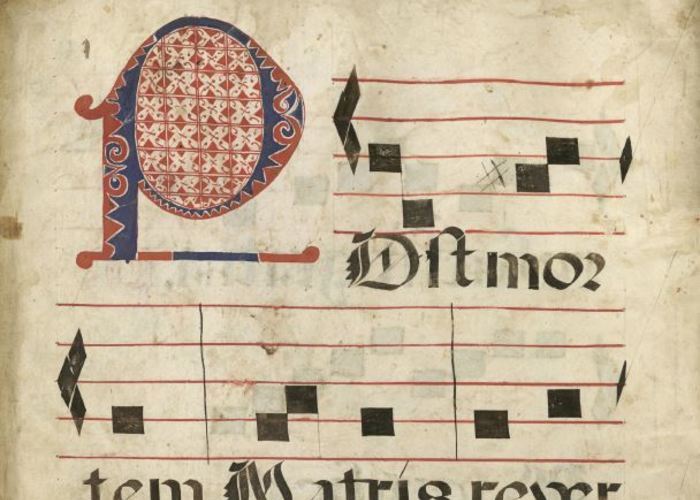 POſtmoꝛ
tem Matris rever